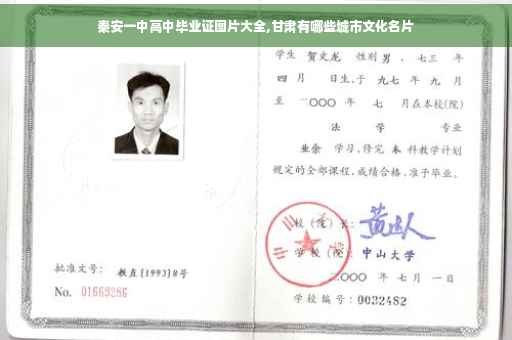 秦安一中高中毕业证图片大全,甘肃有哪些城市文化名片
学生 贺文龙 性别 男 、七三 年
四 月 日生,于 九七 年 九 月
至 二〇〇〇 年 七 月在本校(院)
法 学 专业
业余 学习,修完 本 科教学计划
规定的全部课程,成绩合格,准予毕业。
校 (院) 长:
学 校 (院): 中山大学
二〇〇〇 年 七 月 一 日
批准文号: 教直[1993]8号
No. 01663286
学校编号: 0032482